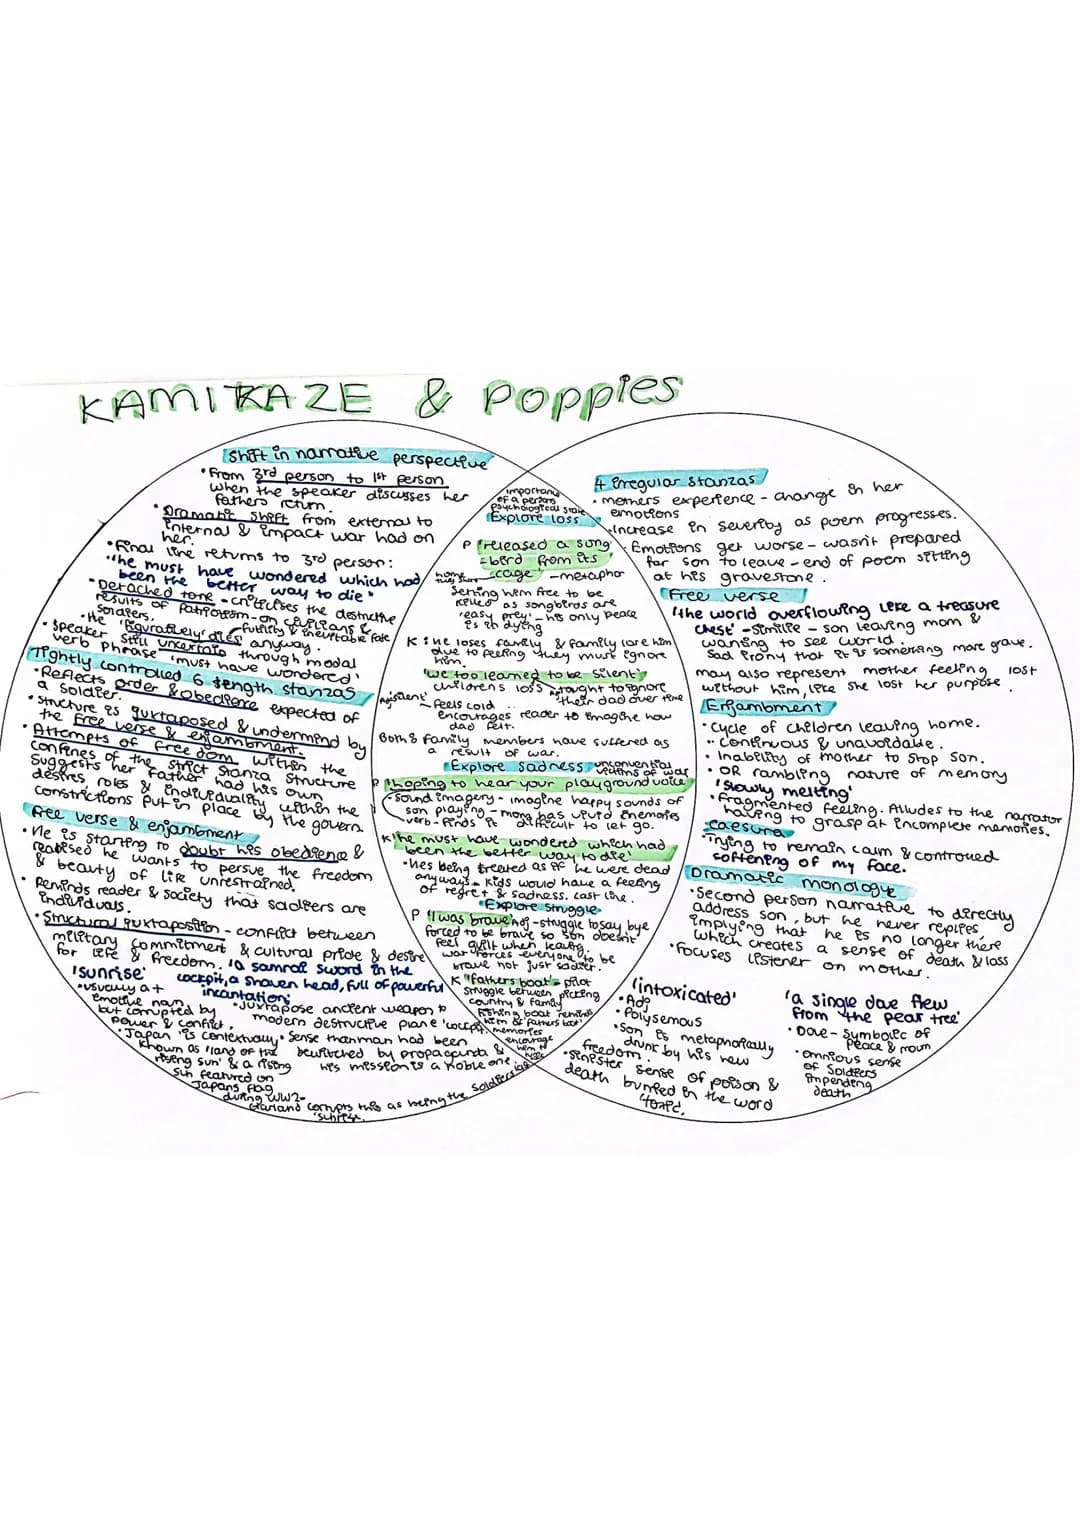 KAMIKAZE & Poppies
Shift in narrative perspective
• From 3rd person to 1st person
when the speaker discusses her
fathers return.
• Dramatic shift from external to
internal & impact war had on
her.
• Final line returns to 3rd person:
"he must have wondered which had
been the better way to die"
• Detached tone - criticises the destructive
results of patriotism - on civilians &
soldiers.
- futility & inevitable fate
• He 'figuratively dies' anyway.
• Speaker still uncertain through modal
verb phrase 'must have wondered'
Tightly controlled 6 length stanzas
• Reflects order & obedience expected of
a soldier.
• Structure is juxtaposed & undermind by
the free verse & enjambment.
• Attempts of freedom within the
confines of the strict stanza structure
Suggests her father had his own
desires, roles & individuality within the
constrictions put in place by the govern
Free verse & enjambment
• He is starting to doubt his obedience &
realised he wants to persue the freedom
& beauty of life unrestrained.
• Reminds reader & society that soldiers are
individuals.
• Structural juxtaposition - conflict between
military commitment & cultural pride & desire
for life & freedom. 'a samrai sword in the
cockpit, a shaven head, full of powerful
incantations'
'Sunrise'
• usually a +
emotive nan,
but corrupted by
power & conflict.
• Juxtapose ancient weapon to
modern destructive plane 'cockpit'
• Sense than man had been
bewitched by propaganda &
his mission is a noble one.
• Japan is contextually
known as 'land of the
rising sun' & a rising
sun featured on
Japans flag
during WW2-
Garland corrupts this as being the soldiers last
'sunrise'.
importance
of a persons
psychological state
Explore loss
P 'released a song
- bird from its
cage' - metaphor
Setting him free to be
killed as songbirds are
'easy prey' - his only peace
is in dying
K: He loses family & family lose him
due to feeling they must ignore
him.
'we too learned to be silent'
childrens loss - taught to ignore
their dad over time
- feels cold
encourages reader to imagine how
dad felt.
Both & family members have suffered as
a result of war.
Explore sadness unconventional
victims of war
P 'hoping to hear your playground voice'
• Sound imagery - imagine happy sounds of
son playing - mong has vivid memories
verb - finds it difficult to let go.
K 'he must have wondered which had
been the better way to die'
• Hes being treated as if he were dead
anyways - kids would have a feeling
of regret & sadness. Last line.
• Explore struggle
P 'I was brave' Adj - struggle to say bye
forced to be brave so son doesnt
feel guilt when leaving.
war forces everyone to be
brave not just soldier.
K "fathers boat" - pilot
struggle between picking
country & family
fishing boat reminds
him of 'fathers boat'
memories
encourage
him to
4 irregular stanzas
• mothers experience - change in her
emotions
• Increase in severity as poem progresses.
• Emotions get worse - wasnt prepared
for son to leave - end of poem sitting
at his gravestone.
Free verse
'the world overflowing like a treasure
chest' - Similie - son leaving mom &
waning to see world.
Sad irony that it is something more grave.
may also represent mother feeling lost
without him, like she lost her purpose.
Enjambment
• Cycle of children leaving home.
• Continuous & unavoidable.
• Inability of mother to stop son.
• OR rambling nature of memory
'Slowly melting'
• fragmented feeling. Alludes to the narrator
having to grasp at incomplete memories.
Caesura
• Trying to remain calm & controued
softening of my face.
Dramatic monologue
• Second person narrative to directly
address son, but he never replies,
implying that he is no longer there
which creates a sense of death & loss
• Focuses listener on mother.
'intoxicated'
• Adj
• Polysemous
• Son is metaphorically
drunk by his new
freedom.
• Sinister sense of poison &
death burried in the word
'toxic'.
'a single dove flew
from the pear tree'
• Dove - Symbolic of
peace & mourn
• Omnious sense
of soldiers
impending
death